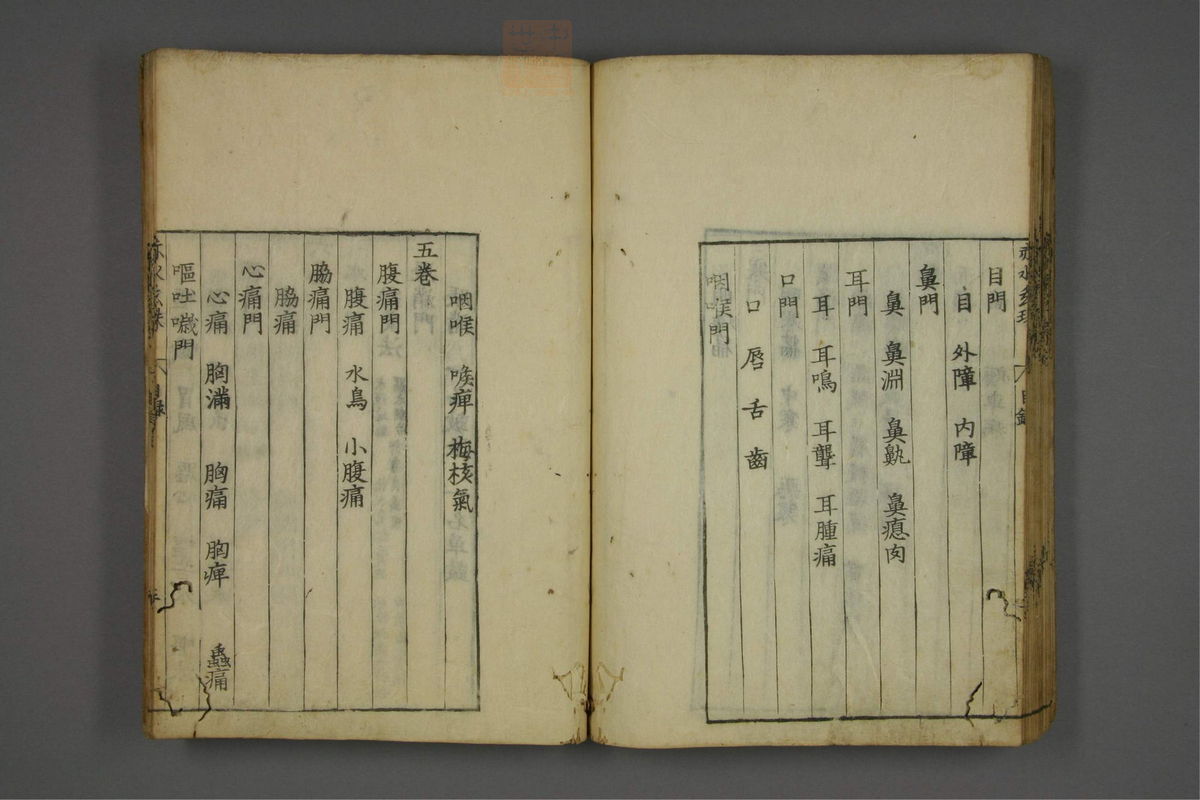 目門
目　外障　内障
鼻門
鼻　鼻淵　鼻鼽　鼻瘜肉
耳門
耳　耳鳴　耳聾　耳腫痛
口門
口　唇　舌　齒
咽喉門
咽喉　喉痺　梅核氣
五卷
腹痛門
腹痛　水鳥　小腹痛
脇痛門
脇痛
心痛門
心痛　胸滿　胸痛　胸痺　蟲痛
嘔吐噦門
赤水玄珠　目錄